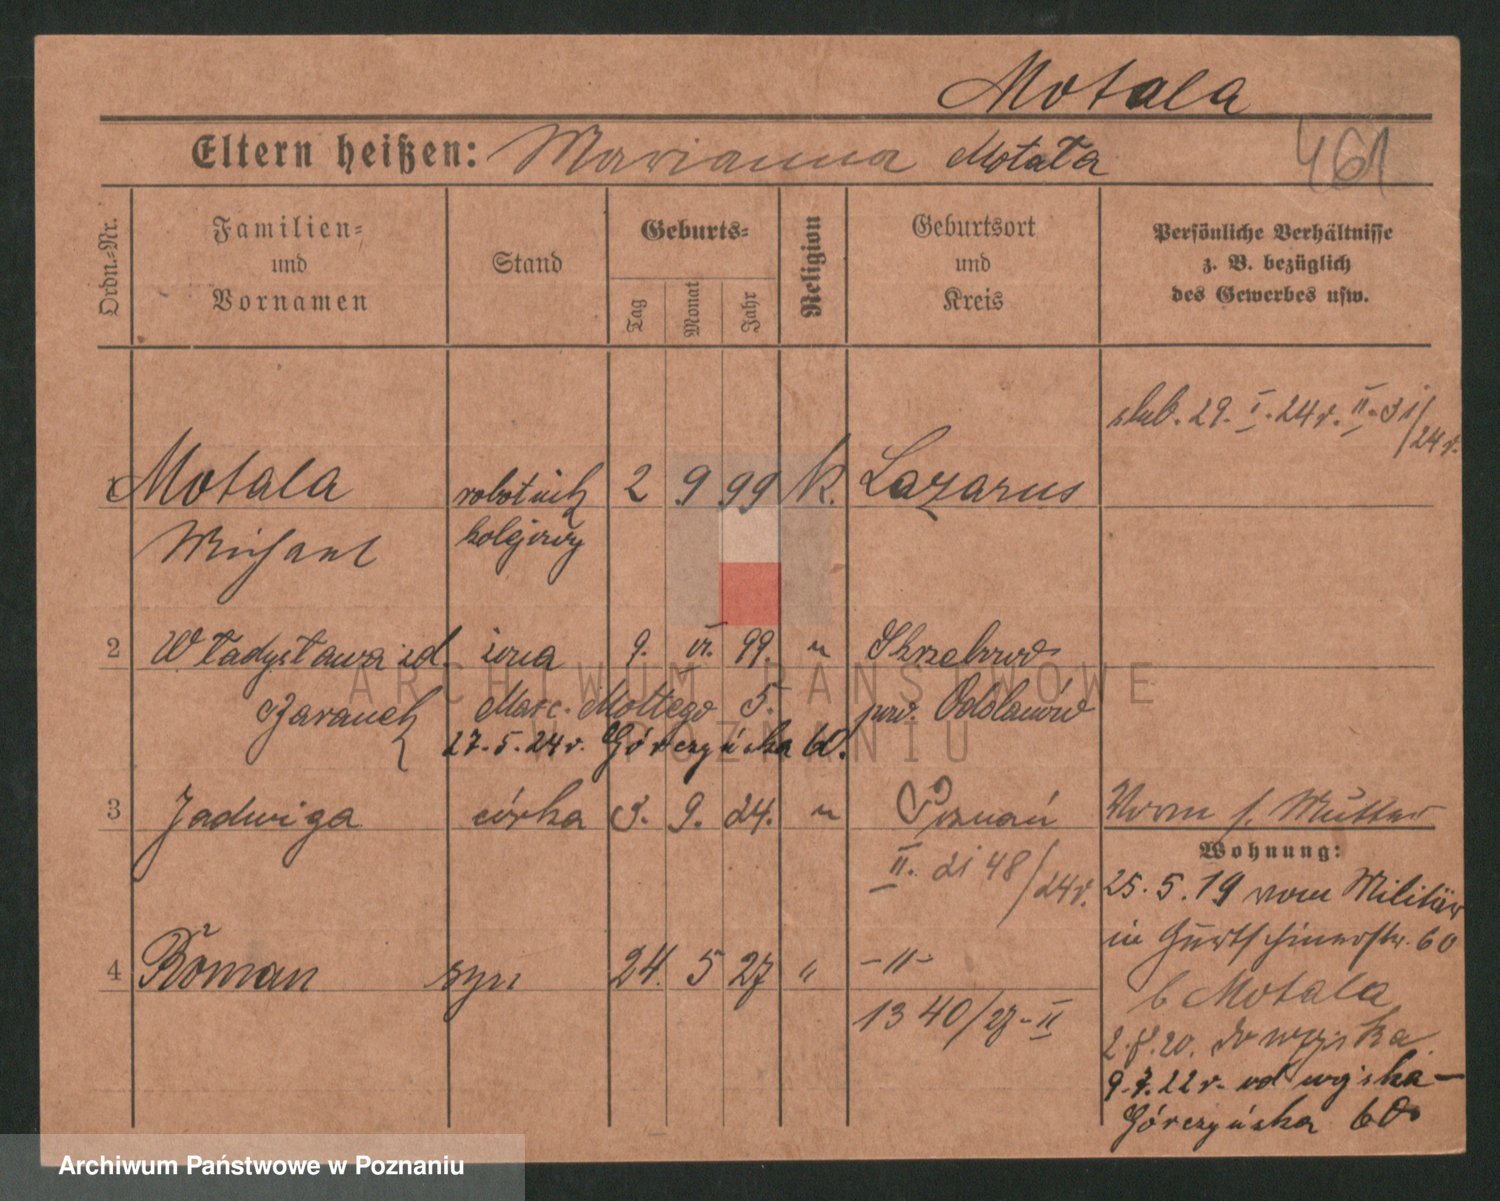 Motala
Eltern heißen: Marianna Motała
461
Ordn.-Nr.
Familien-
und
Vornamen
Stand
Geburts-
Tag
Monat
Jahr
Religion
Geburtsort
und
Kreis
Persönliche Verhältnisse
z. B. bezüglich
des Gewerbes usw.
ślub. 29. I. 24 r. II
/24 r.
1 Motala robotnik 2 9 99 k. Lazarus
Michael kolejowy
2 Władysława zd. żona 9. VI. 99. " Skrzebowo
Baranek Marc. Mottego 5. pow. Odolanów
27.5.24 r. Górczyńska 60.
3 Jadwiga córka 3. 9. 24. " Poznań
II. 2148/24 r.
Vorm f. Mutter
Wohnung:
25.5.19 vom Militär
in Gurtschinerstr. 60
b Motala
4 Roman syn 24. 5 27 " -"-
1340/27-II
2.8.20. do wojska
9.7.22 r. od wojska -
Górczyńska 60
ARCHIWUM PAŃSTWOWE
W POZNANIU
Archiwum Państwowe w Poznaniu